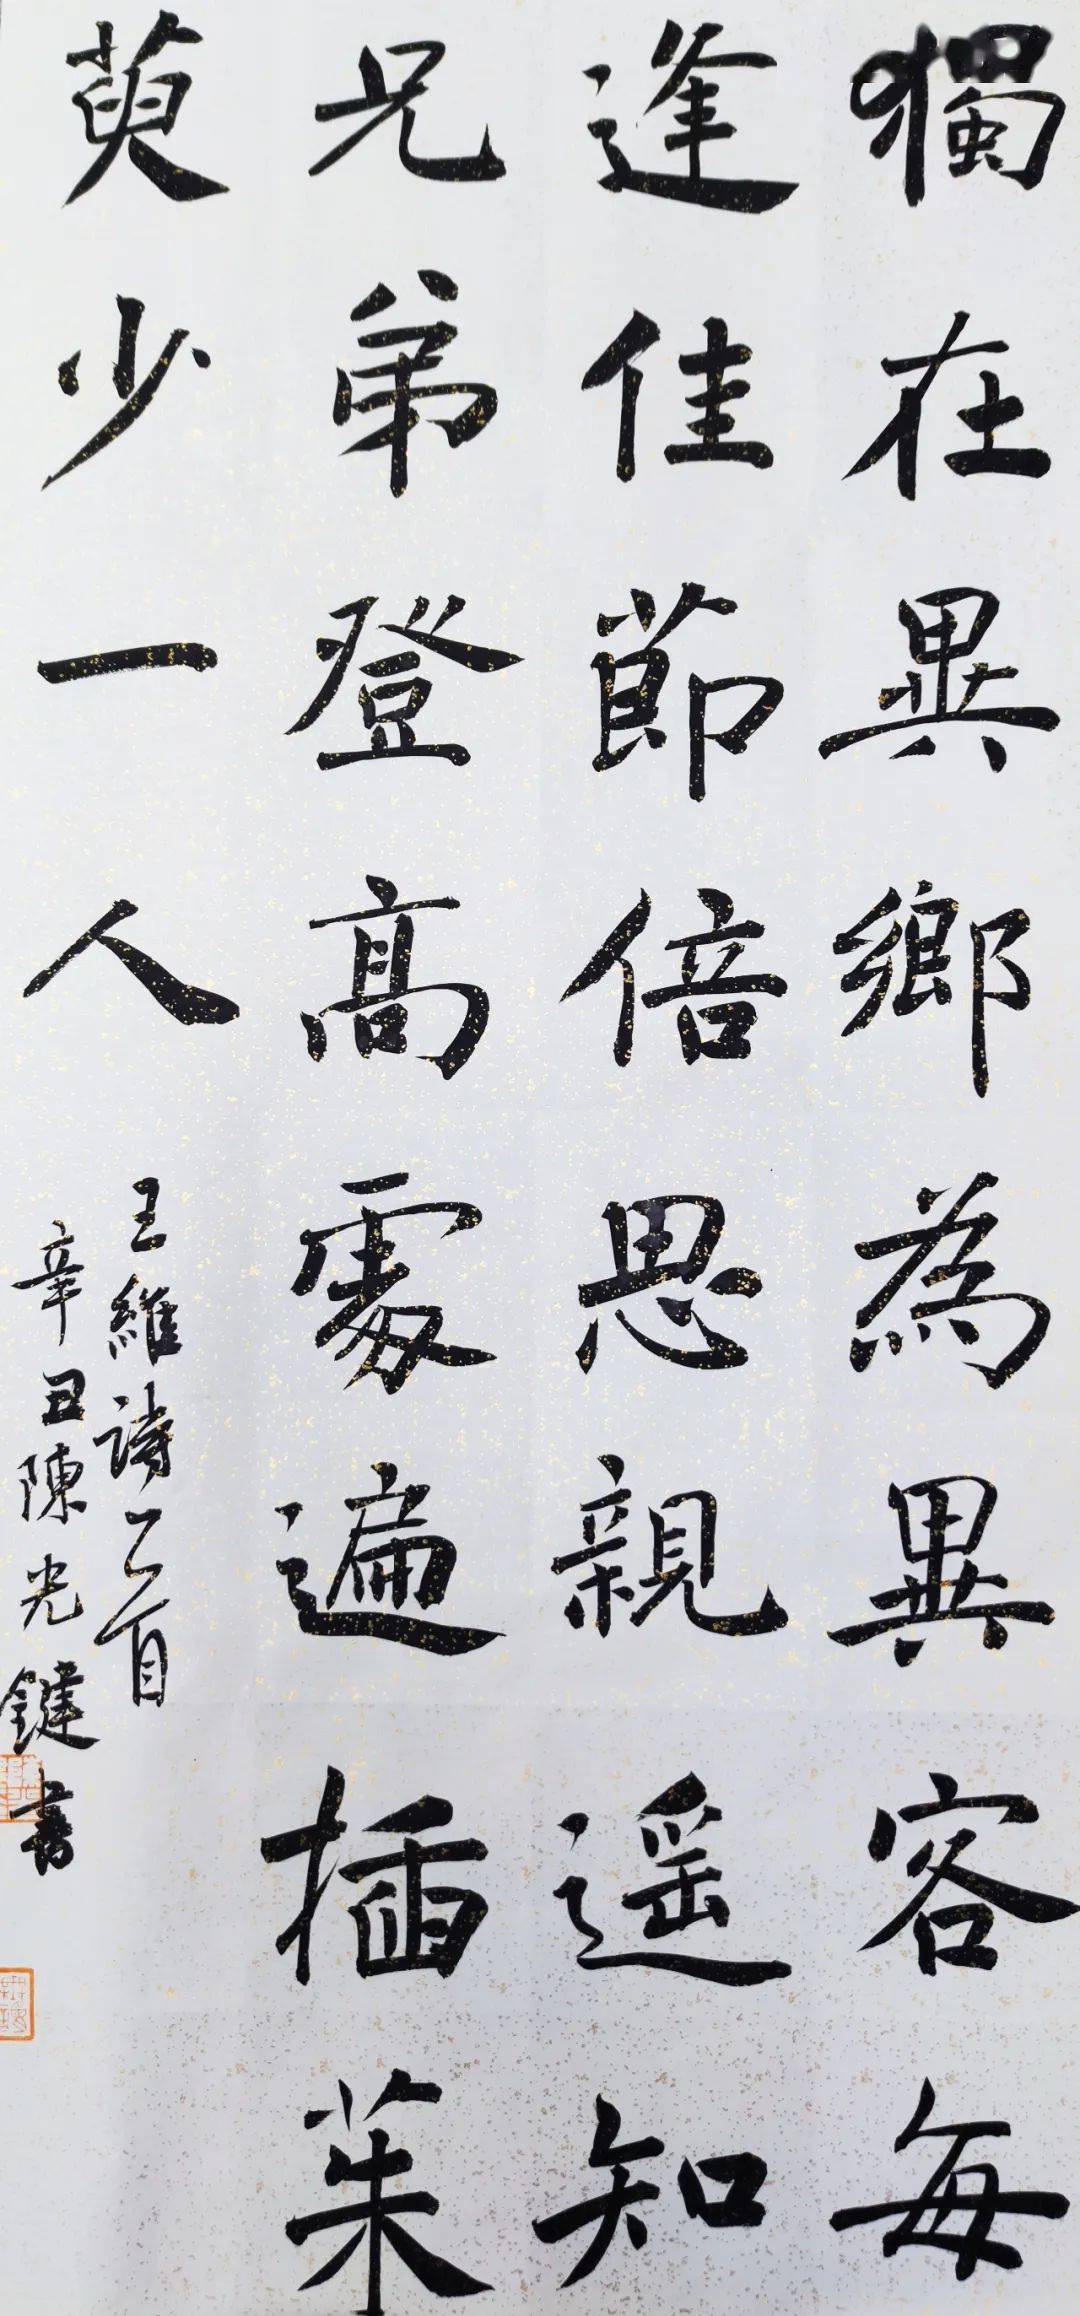 獨在異鄉為異客每
逢佳節倍思親遥知
兄弟登高處遍插茱
萸少一人
王維詩一首
辛丑陳光鍵書